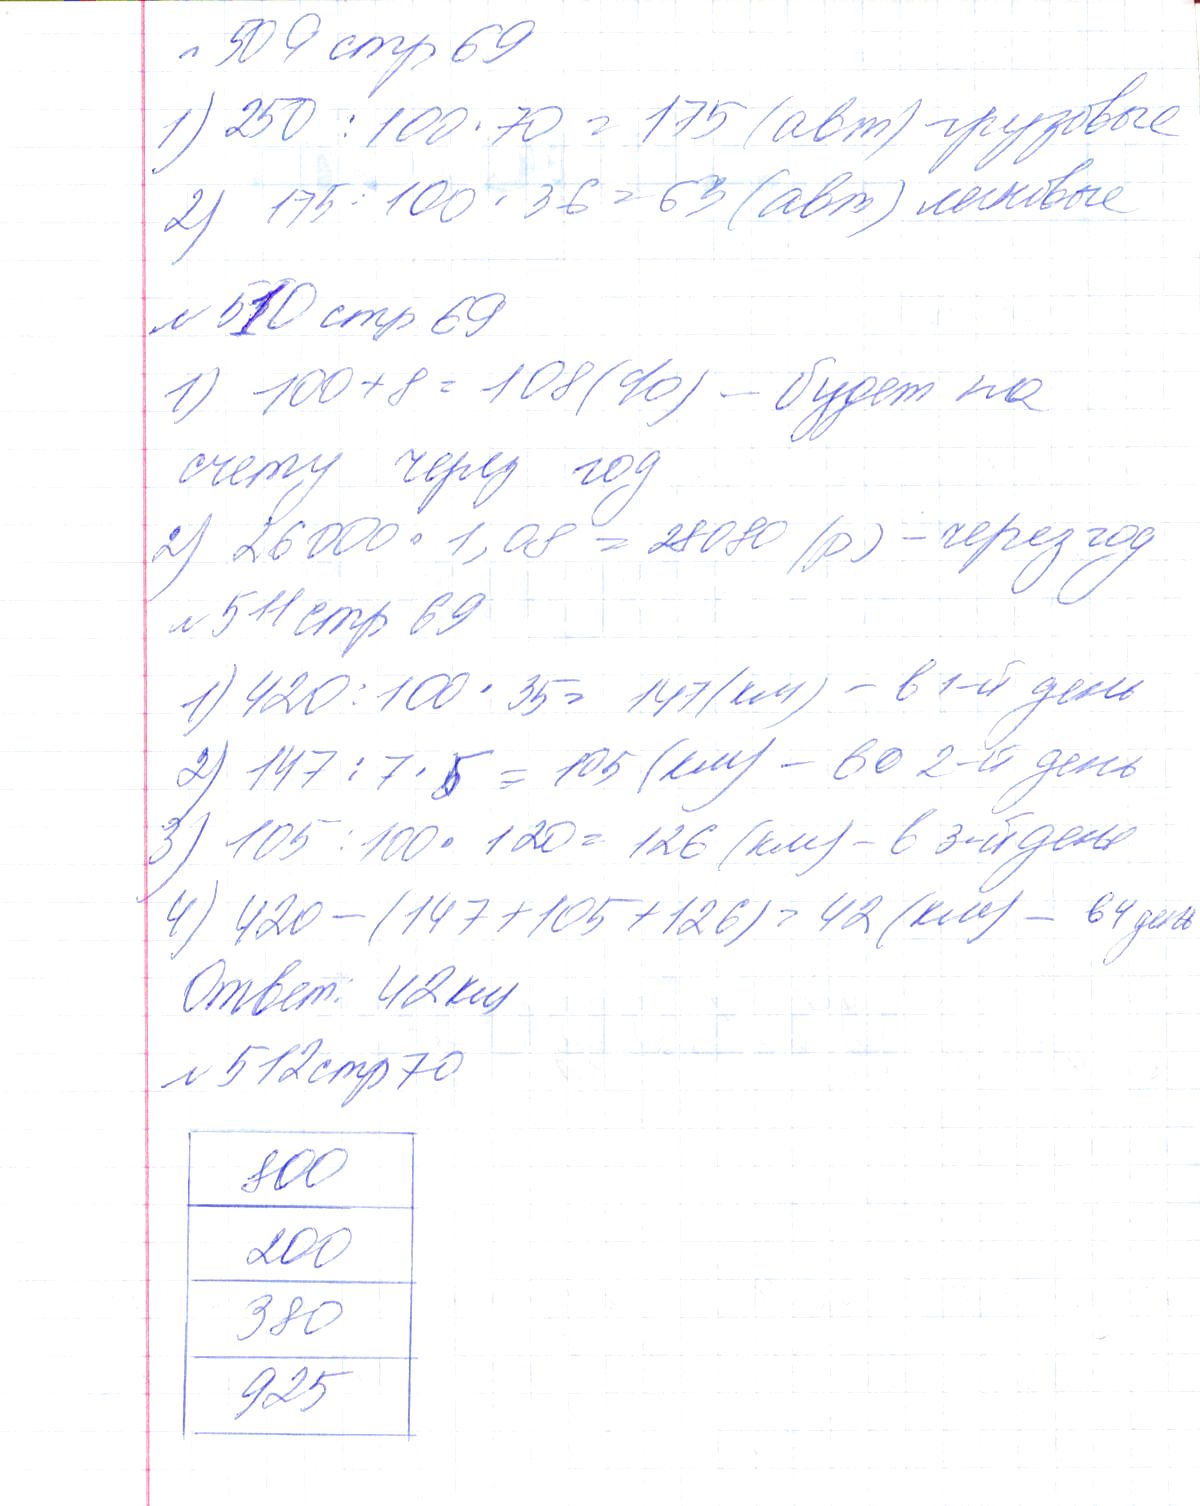 № 509 стр 69
1) 250 : 100 · 70 = 175 (авт) - грузовые
2) 175 : 100 · 36 = 63 (авт) легковые
№ 510 стр 69
1) 100 + 8 = 108 (%) - будет на
счету через год
2) 26000 · 1,08 = 28080 (р) - через год
№ 511 стр 69
1) 420 : 100 · 35 = 147 (км) - в 1-й день
2) 147 : 7 · 5 = 105 (км) - во 2-й день
3) 105 : 100 · 120 = 126 (км) - в 3-й день
4) 420 - (147 + 105 + 126) = 42 (км) - в 4 день
Ответ: 42 км
№ 512 стр 70
800
200
380
925